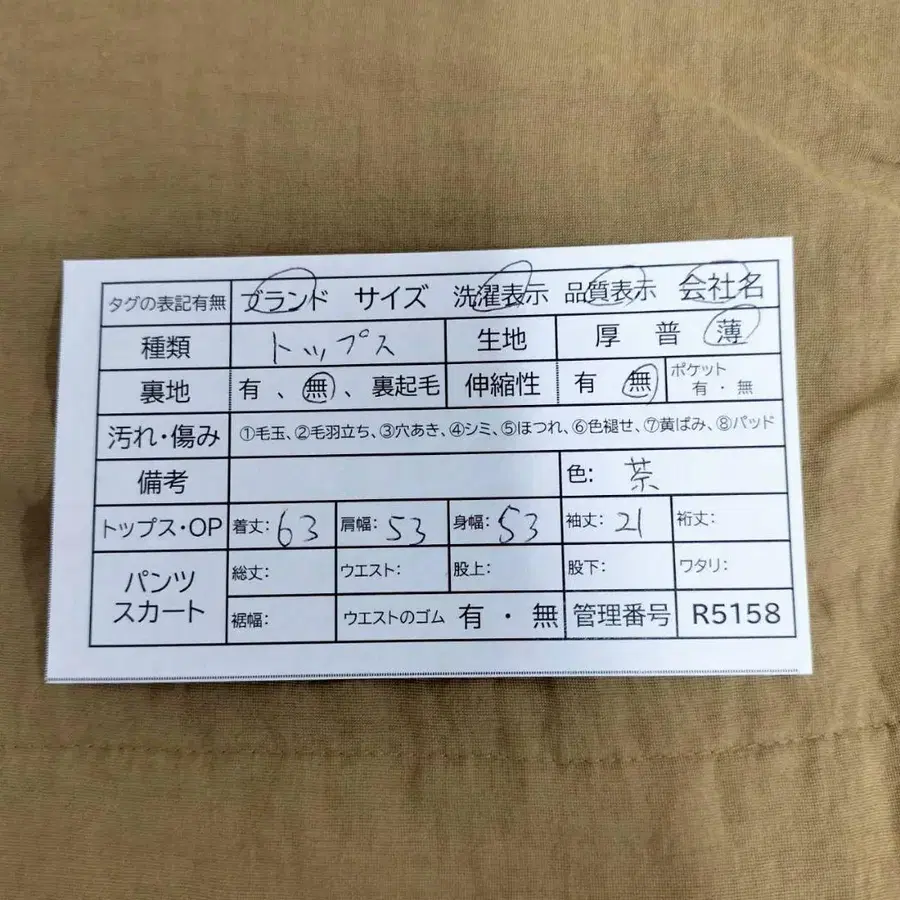 タグの表記有無 ブランド サイズ 洗濯表示 品質表示 会社名
種類 トップス 生地 厚 普 薄
裏地 有、無、裏起毛 伸縮性 有 無 ポケット 有・無
汚れ・傷み ①毛玉、②毛羽立ち、③穴あき、④シミ、⑤ほつれ、⑥色褪せ、⑦黄ばみ、⑧パッド
備考 色: 茶
トップス・OP 着丈: 63 肩幅: 53 身幅: 53 袖丈: 21 裄丈:
パンツ スカート 総丈: ウエスト: 股上: 股下: ワタリ:
裾幅: ウエストのゴム 有・無 管理番号 R5158